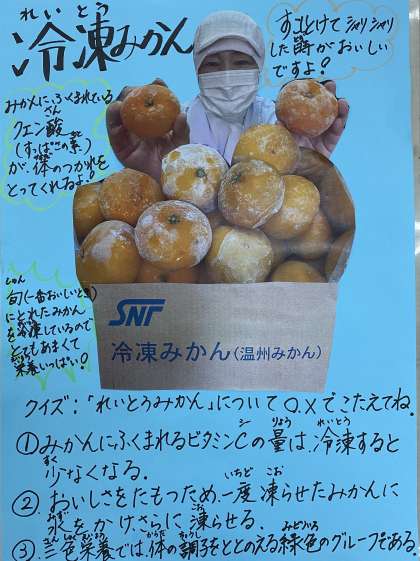 れいとう
冷凍みかん
すこしとけてシャリシャリ
した時がおいしい
ですよ?
みかんにふくまれている
クエン酸
さん
(すっぱさの素)
が、体のつかれを
とってくれるよ?
しゅん
旬(一番おいしいとき)
にとれたみかん
を冷凍しているので
とてもあまくて
栄養いっぱい?
SNF
冷凍みかん(温州みかん)
クイズ:「れいとうみかん」について○.×でこたえてね。
①みかんにふくまれるビタミンCの量は、冷凍すると
シー りょう れいとう
少なくなる。
すく
②. おいしさをたもつため、一度凍らせたみかんに
いちど こお
水をかけ、さらに凍らせる。
みず こお
③. 三色栄養では、体の調子をととのえる緑色のグループである。
からだ ちょうし みどりいろ